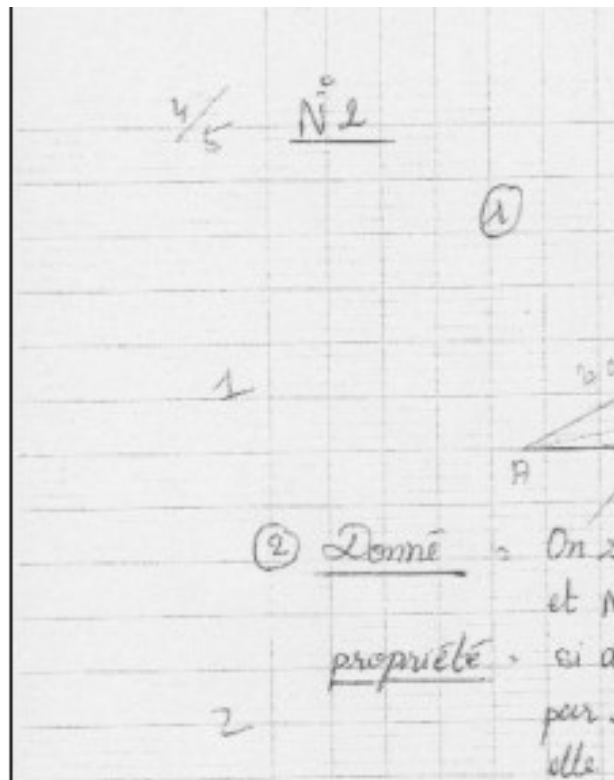 4/5 N° 2
①
1
A
② Donné : On
et N
propriété : si
2 par
elle